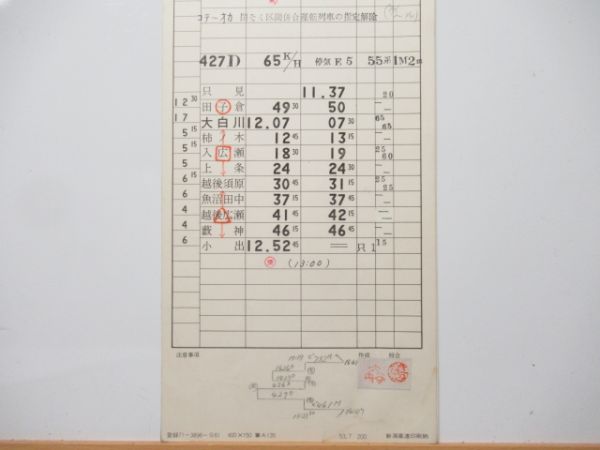 コテ〜オカ 間なく区間併合運転列車の指定解除
427D 65 K/H 停気 E5 55系 1M2m
只見 11.37 20
12 30 田子倉 49 30 50
17 大白川 12.07 07 30 65 65
5 15 柿ノ木 12 45 13 15
5 15 入広瀬 18 30 19 25 60
5 上条 24 24 30
6 15 越後須原 30 45 31 15 25 25
6 魚沼田中 37 15 37 45
4 越後広瀬 41 45 42 15
4 藪神 46 15 46 45
6 小出 12.52 45 只1 15
(13:00)
注意事項 作成 照合
427D
53.7 200 新潟鉄道印刷納